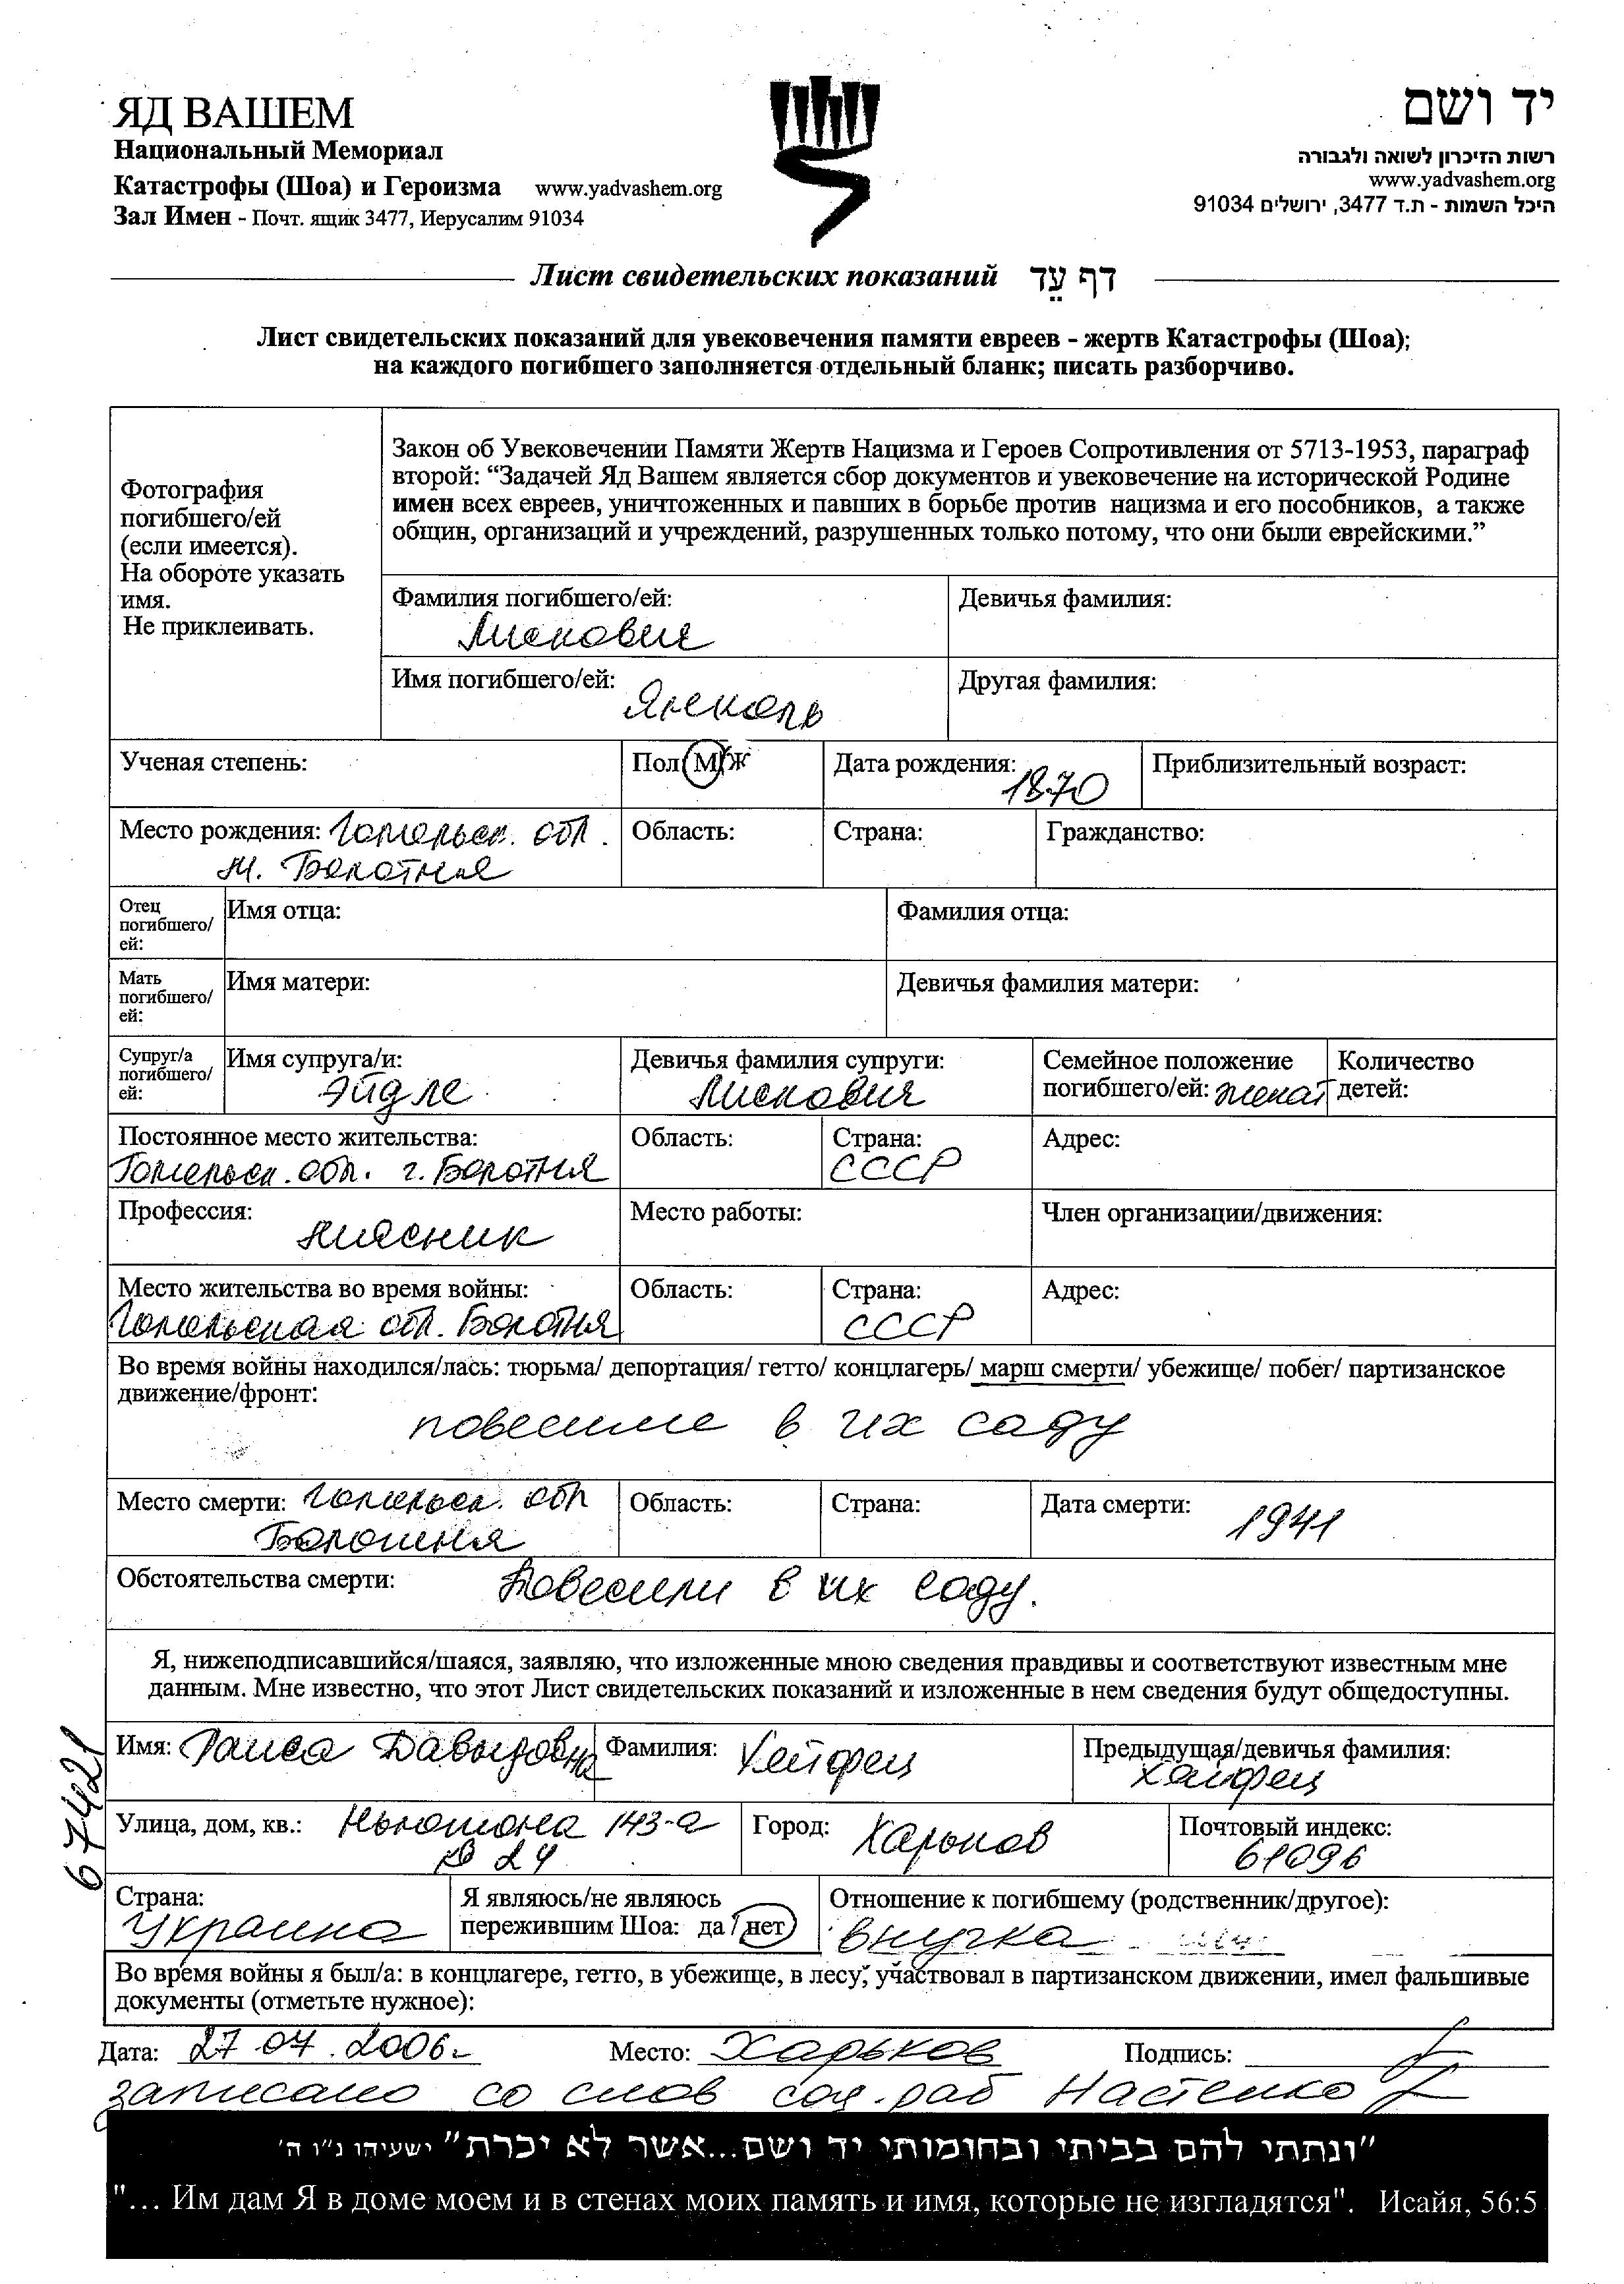 ЯД ВАШЕМ
Национальный Мемориал
Катастрофы (Шоа) и Героизма www.yadvashem.org
Зал Имен - Почт. ящик 3477, Иерусалим 91034
יד ושם
רשות הזיכרון לשואה ולגבורה
www.yadvashem.org
היכל השמות - ת.ד 3477, ירושלים 91034
Лист свидетельских показаний דף עֵד
Лист свидетельских показаний для увековечения памяти евреев - жертв Катастрофы (Шоа);
на каждого погибшего заполняется отдельный бланк; писать разборчиво.
Фотография
погибшего/ей
(если имеется).
На обороте указать
имя.
Не приклеивать.
Закон об Увековечении Памяти Жертв Нацизма и Героев Сопротивления от 5713-1953, параграф
второй: “Задачей Яд Вашем является сбор документов и увековечение на исторической Родине
имен всех евреев, уничтоженных и павших в борьбе против нацизма и его пособников, а также
общин, организаций и учреждений, разрушенных только потому, что они были еврейскими.”
Фамилия погибшего/ей: Девичья фамилия:
Лискович
Имя погибшего/ей: Янкель Другая фамилия:
Ученая степень: Пол М/Ж Дата рождения: 1870 Приблизительный возраст:
Место рождения: Гомельск. обл. Область: Страна: Гражданство:
м. Болотня
Отец
погибшего/
ей:
Имя отца: Фамилия отца:
Мать
погибшего/
ей:
Имя матери: Девичья фамилия матери:
Супруг/а
погибшего/
ей:
Имя супруга/и: Девичья фамилия супруги: Семейное положение Количество
Эйдле Лискович погибшего/ей: женат детей:
Постоянное место жительства: Область: Страна: Адрес:
Гомельск. обл. г. Болотня СССР
Профессия: Место работы: Член организации/движения:
мясник
Место жительства во время войны: Область: Страна: Адрес:
Гомельская обл. Болотня СССР
Во время войны находился/лась: тюрьма/ депортация/ гетто/ концлагерь/ марш смерти/ убежище/ побег/ партизанское
движение/фронт:
повесили в их саду
Место смерти: Гомельск. обл Область: Страна: Дата смерти: 1941
Болотня
Обстоятельства смерти: Повесили в их саду.
Я, нижеподписавшийся/шаяся, заявляю, что изложенные мною сведения правдивы и соответствуют известным мне
данным. Мне известно, что этот Лист свидетельских показаний и изложенные в нем сведения будут общедоступны.
67421
Имя: Раиса Давыдовна Фамилия: Хейфец Предыдущая/девичья фамилия:
Хейфец
Улица, дом, кв.: Ньютона 143-а Город: Харьков Почтовый индекс:
24 61096
Страна: Я являюсь/не являюсь Отношение к погибшему (родственник/другое):
Украина пережившим Шоа: да / нет внучка
Во время войны я был/а: в концлагере, гетто, в убежище, в лесу, участвовал в партизанском движении, имел фальшивые
документы (отметьте нужное):
Дата: 27.04.2006 Место: Харьков Подпись:
записано со слов соц.раб Настенко
"ונתתי להם בביתי ובחומותי יד ושם...אשר לא יכרת" ישעיהו נ"ו ה'
"... Им дам Я в доме моем и в стенах моих память и имя, которые не изгладятся". Исайя, 56:5